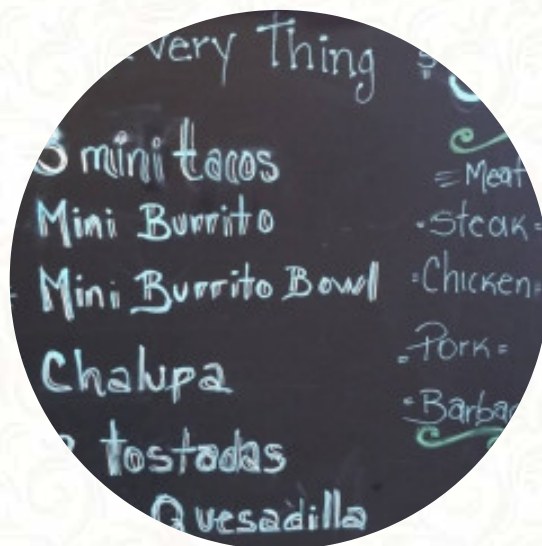 very Thing $
3 mini tacos
Mini Burrito
Mini Burrito Bowl
Chalupa
tostadas
Quesadilla
= Meat
• Steak =
= Chicken =
= Pork =